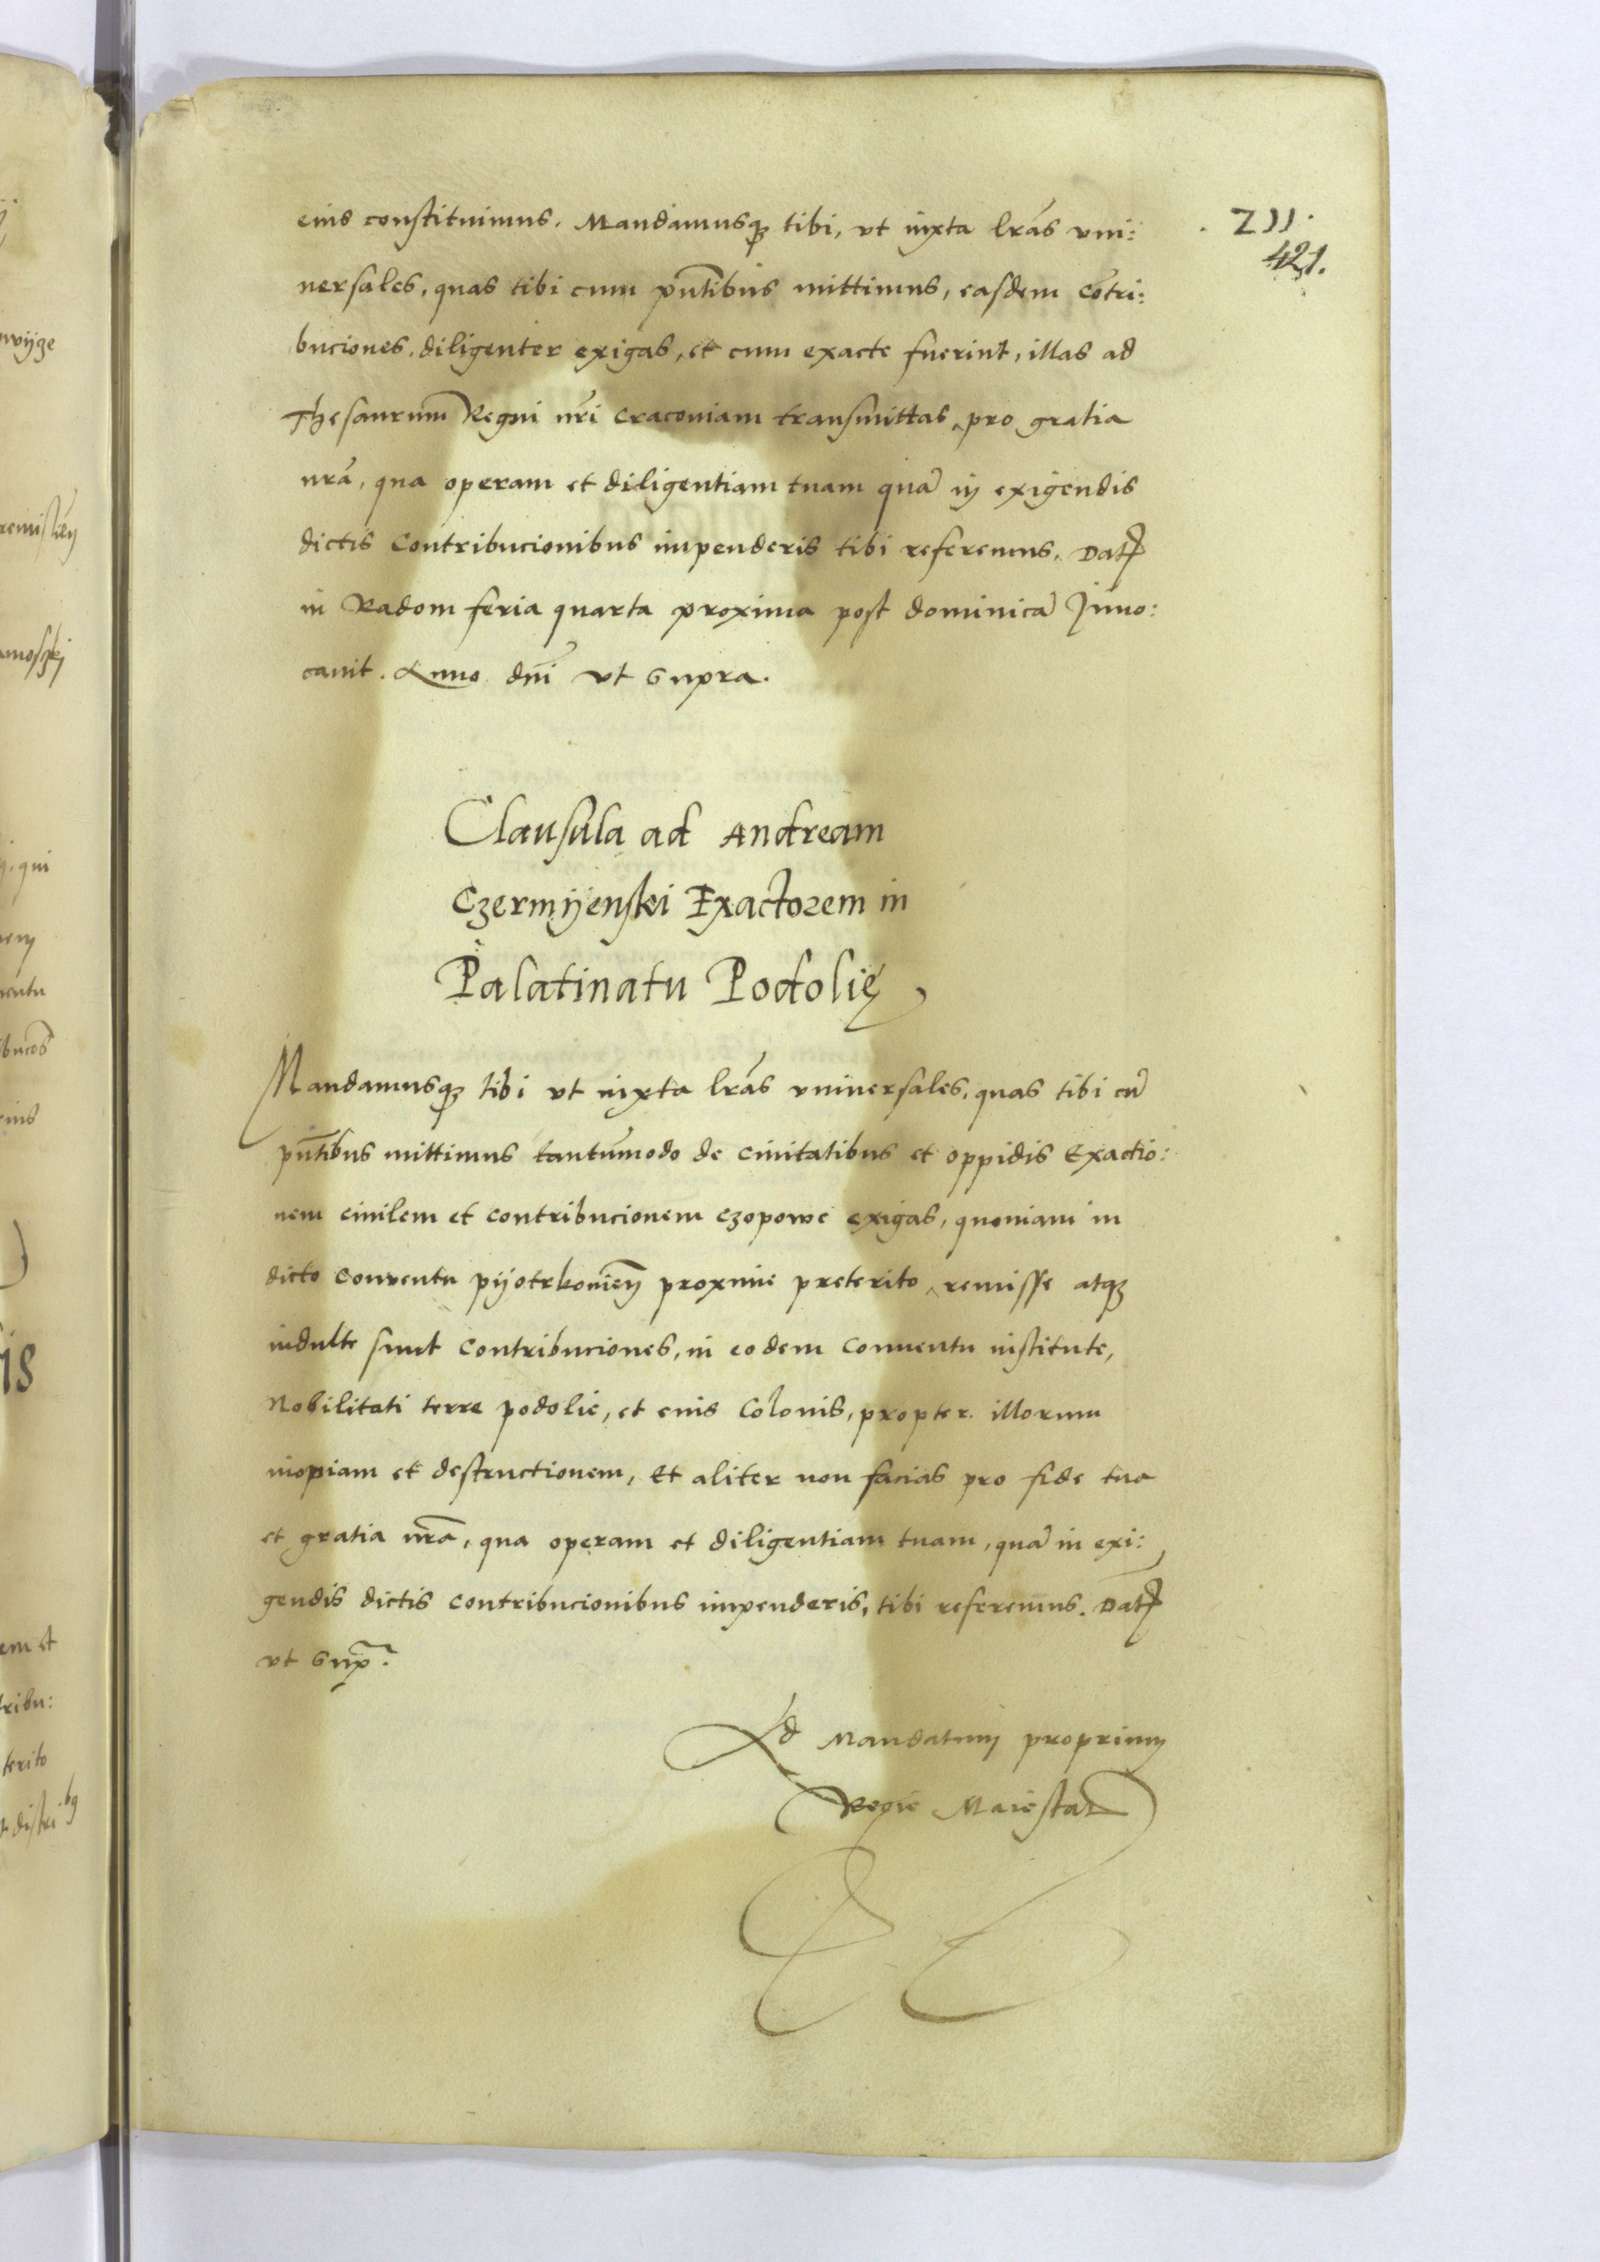 eius constituimus. Mandamusq₃ tibi, vt iuxta lrãs vni:
uersales, quas tibi cum pñtibus mittimus, easdem cõtri:
buciones, diligenter exigas, et cum exacte fuerint, illas ad
Thesaurum Regni nrĩ Cracouiam transmittas, pro gratia
nrã, qua operam et diligentiam tuam quã in exigendis
dictis Contribucionibus impenderis tibi referemus. Dat̃
in Radom feria quarta proxima post dominicã Inuo:
cauit. Anno dnĩ vt supra.
. 211.
421.
Clausula ad Andream
Czermijenski Exactorem in
Palatinatu Podolię,
Mandamusq₃ tibi vt iuxta lrãs vniuersales, quas tibi cũ
pñtibus mittimus tantũmodo de Ciuitatibus et oppidis Exactio:
nem ciuilem et contribucionem czopowe exigas, quoniam in
dicto Conuentu pijotrkouieñ proxime preterito, remisse atq₃
indulte sunt Contribuciones, in eodem Conuentu institute,
Nobilitati terre podolie, et eius Colonis, propter illorum
inopiam et destructionem, Et aliter non facias pro fide tua
et gratia nrã, qua operam et diligentiam tuam, quã in exi:
gendis dictis contribucionibus impenderis, tibi referemus. Dat̃
vt supᵃ.
Ad Mandatum proprium
Regie Maiestat̃